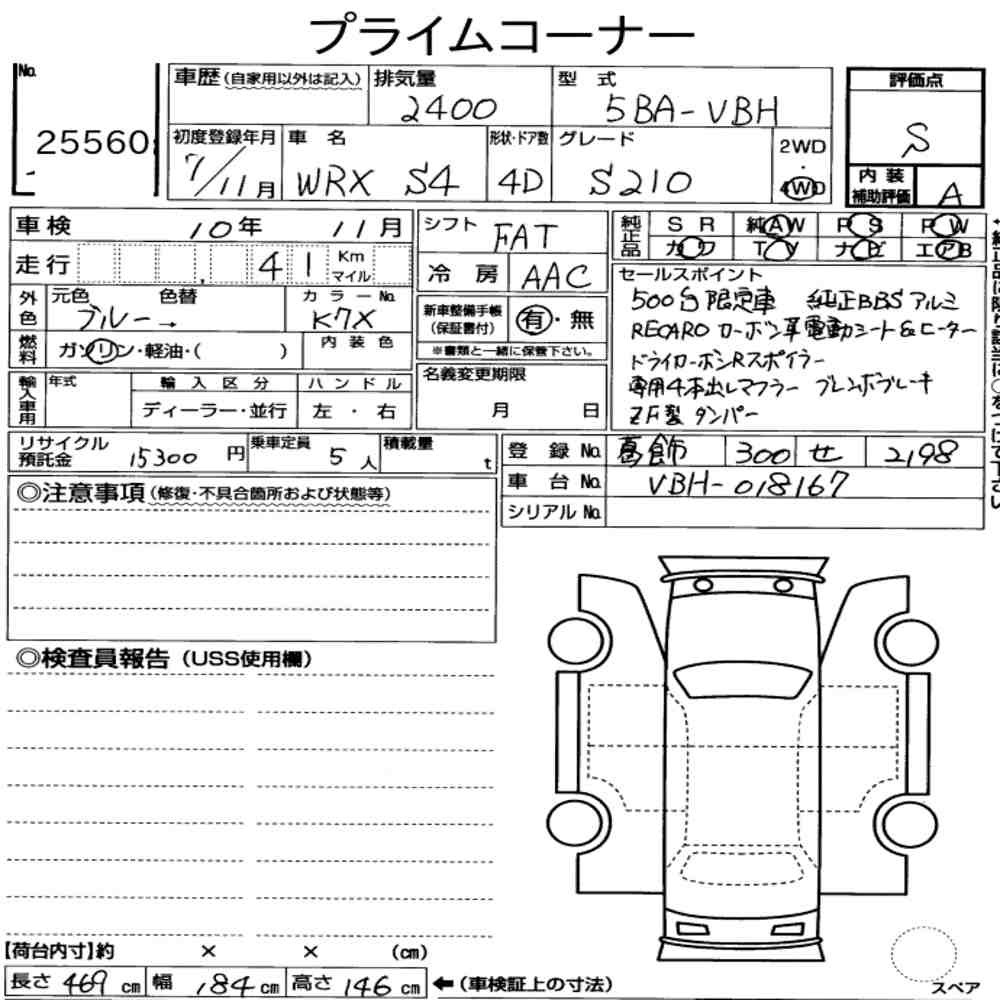 プライムコーナー
No.
25560
車歴(自家用以外は記入) 排気量 2400 型式 5BA-VBH
初度登録年月 7/11月 車名 WRX S4 形状・ドア数 4D グレード S210 2WD・4WD
評価点 S
内装補助評価 A
車検 10年 11月
走行 41 Km マイル
外色 元色 ブルー→ 色替 カラーNo. K7X
燃料 ガソリン・軽油・( ) 内装色
輸入車用 年式 輸入区分 ディーラー・並行 ハンドル 左・右
シフト FAT
冷房 AAC
新車整備手帳(保証書付) 有・無
※書類と一緒に保管下さい。
名義変更期限 月 日
純正品 SR 純AW PS PW
カワ TV ナビ エアB
セールスポイント
500台限定車 純正BBSアルミ
RECAROカーボン革電動シート&ヒーター
ドライカーボンRスポイラー
専用4本出しマフラー ブレンボブレーキ
ZF製ダンパー
リサイクル預託金 15300円 乗車定員 5人 積載量 t
登録No. 葛飾 300 せ 2198
車台No. VBH-018167
シリアルNo.
◎注意事項(修復・不具合箇所および状態等)
◎検査員報告(USS使用欄)
【荷台内寸】約 × × (cm)
長さ 469cm 幅 184cm 高さ 146cm ←(車検証上の寸法)
スペア